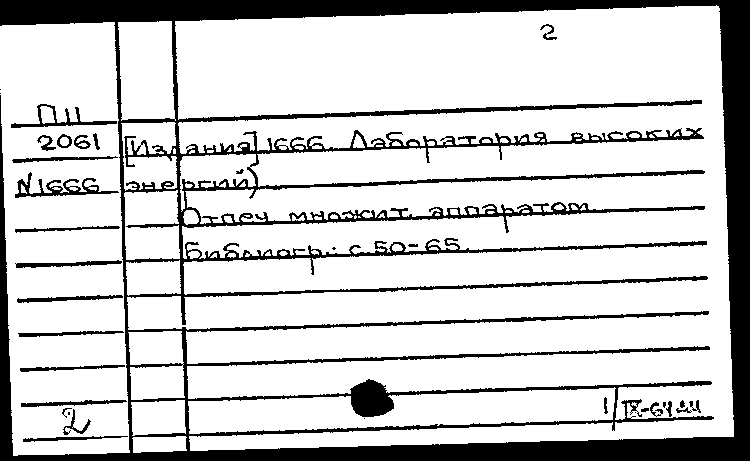 2
П11
2061 [Издания] 1666. Лаборатория высоких
N1666 энергий)
Отпеч. множит. аппаратом
Библиогр.: с. 50-65.
2
1/IX-64